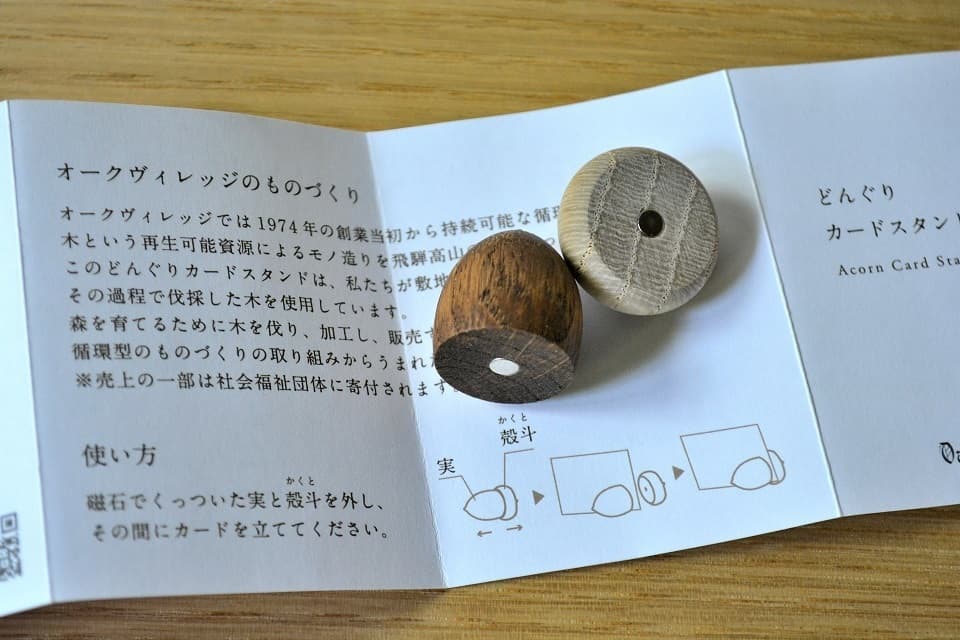 オークヴィレッジのものづくり
オークヴィレッジでは1974年の創業当初から持続可能な循環
木という再生可能資源によるモノ造りを飛騨高山の
このどんぐりカードスタンドは、私たちが敷地
その過程で伐採した木を使用しています。
森を育てるために木を伐り、加工し、販売す
循環型のものづくりの取り組みからうまれた
※売上の一部は社会福祉団体に寄付されます
使い方
磁石でくっついた実と殻斗を外し、
かくと
その間にカードを立ててください。
かくと
殻斗
実
どんぐり
カードスタンド
Acorn Card Sta